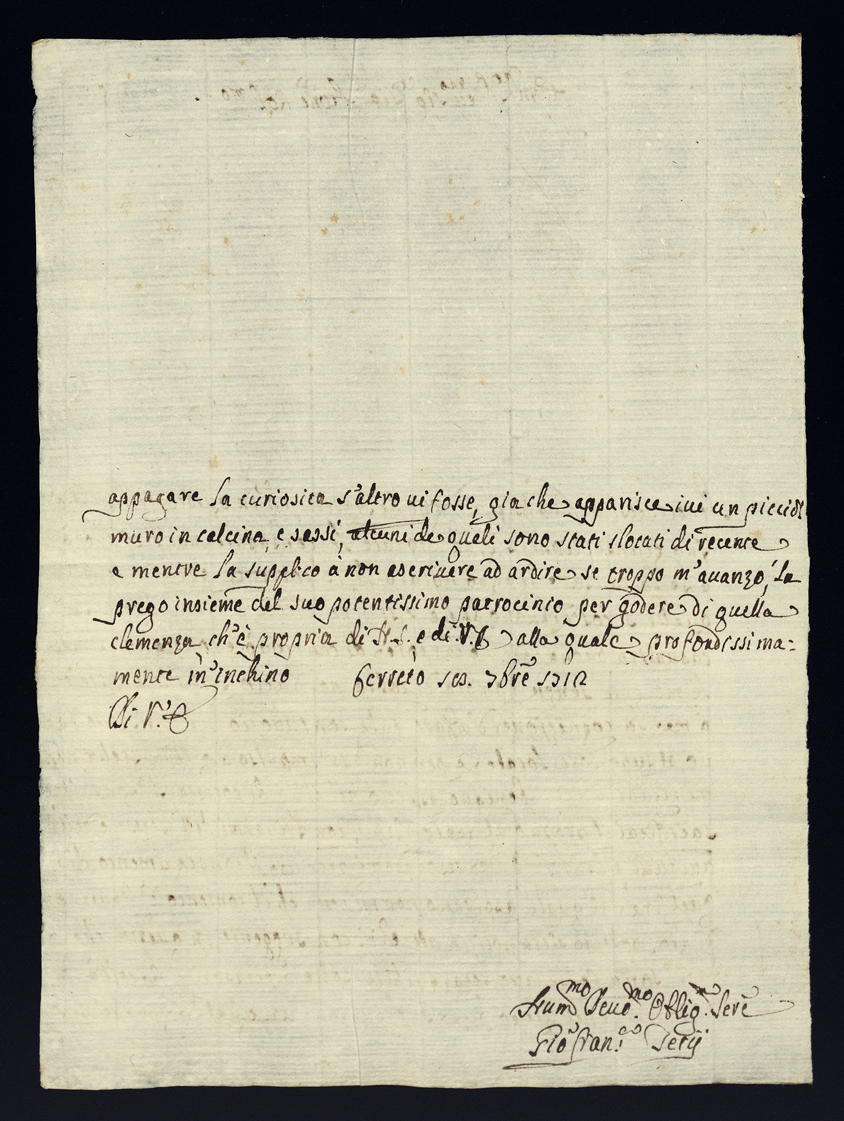 appagare la curiosita s'altro ui fosse, gia che apparisce iui un picciol
muro in calcina, e sassi, alcuni de quali sono stati slocati di recente
e mentre la supplico à non ascriuere ad ardire se troppo m'auanzo, la
prego insieme del suo potentissimo patrocinio per godere di quella
clemenza ch'è propria di e di V. alla quale profondissima=
mente m'Inchino ferreto 7bre 1712
Di V.
Hum.mo Deuo.mo Oblig. Seré
Gio Fran.co